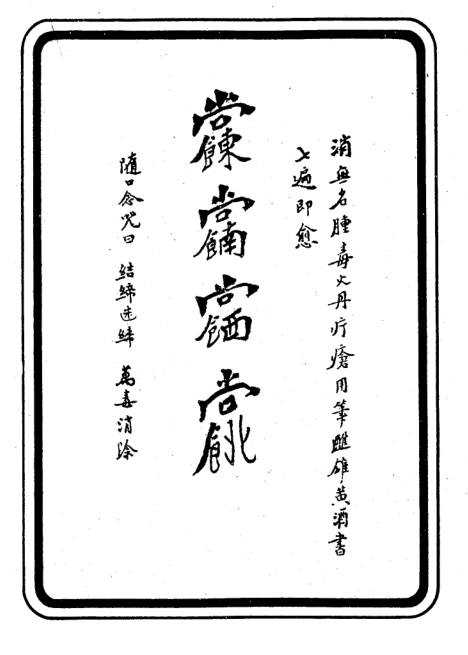 消無名腫毒火丹疔瘡用筆蘸雄黃酒書
七遍即愈
随口念咒曰 結締迷締 萬毒消除